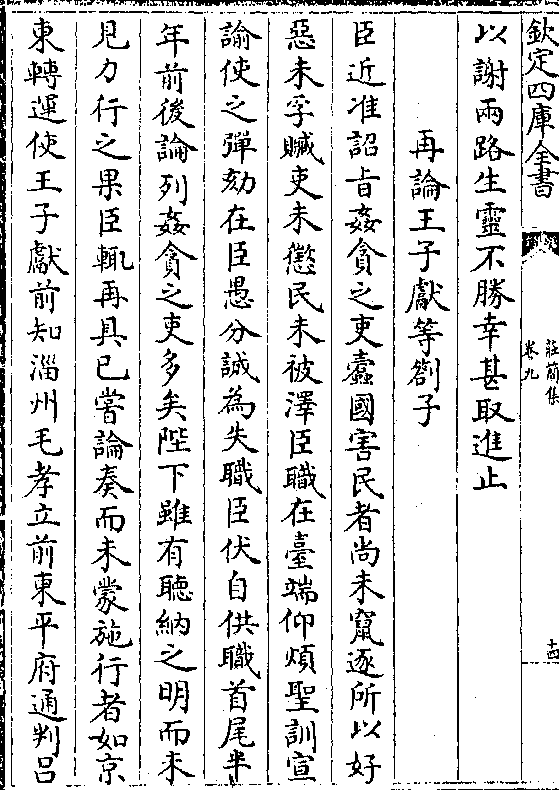 欽定四庫全書
莊簡集
卷九
十四
以謝兩路生靈不勝幸甚取進止
再論王子獻等劄子
臣近准詔旨姦貪之吏蠹國害民者尚未竄逐所以好
惡未孚贓吏未懲民未被澤臣職在臺端仰煩聖訓宣
諭使之彈劾在臣愚分誠為失職臣伏自供職首尾半
年前後論列姦貪之吏多矣陛下雖有聽納之明而未
見力行之果臣輒再具已嘗論奏而未蒙施行者如京
東轉運使王子獻前知淄州毛孝立前東平府通判吕